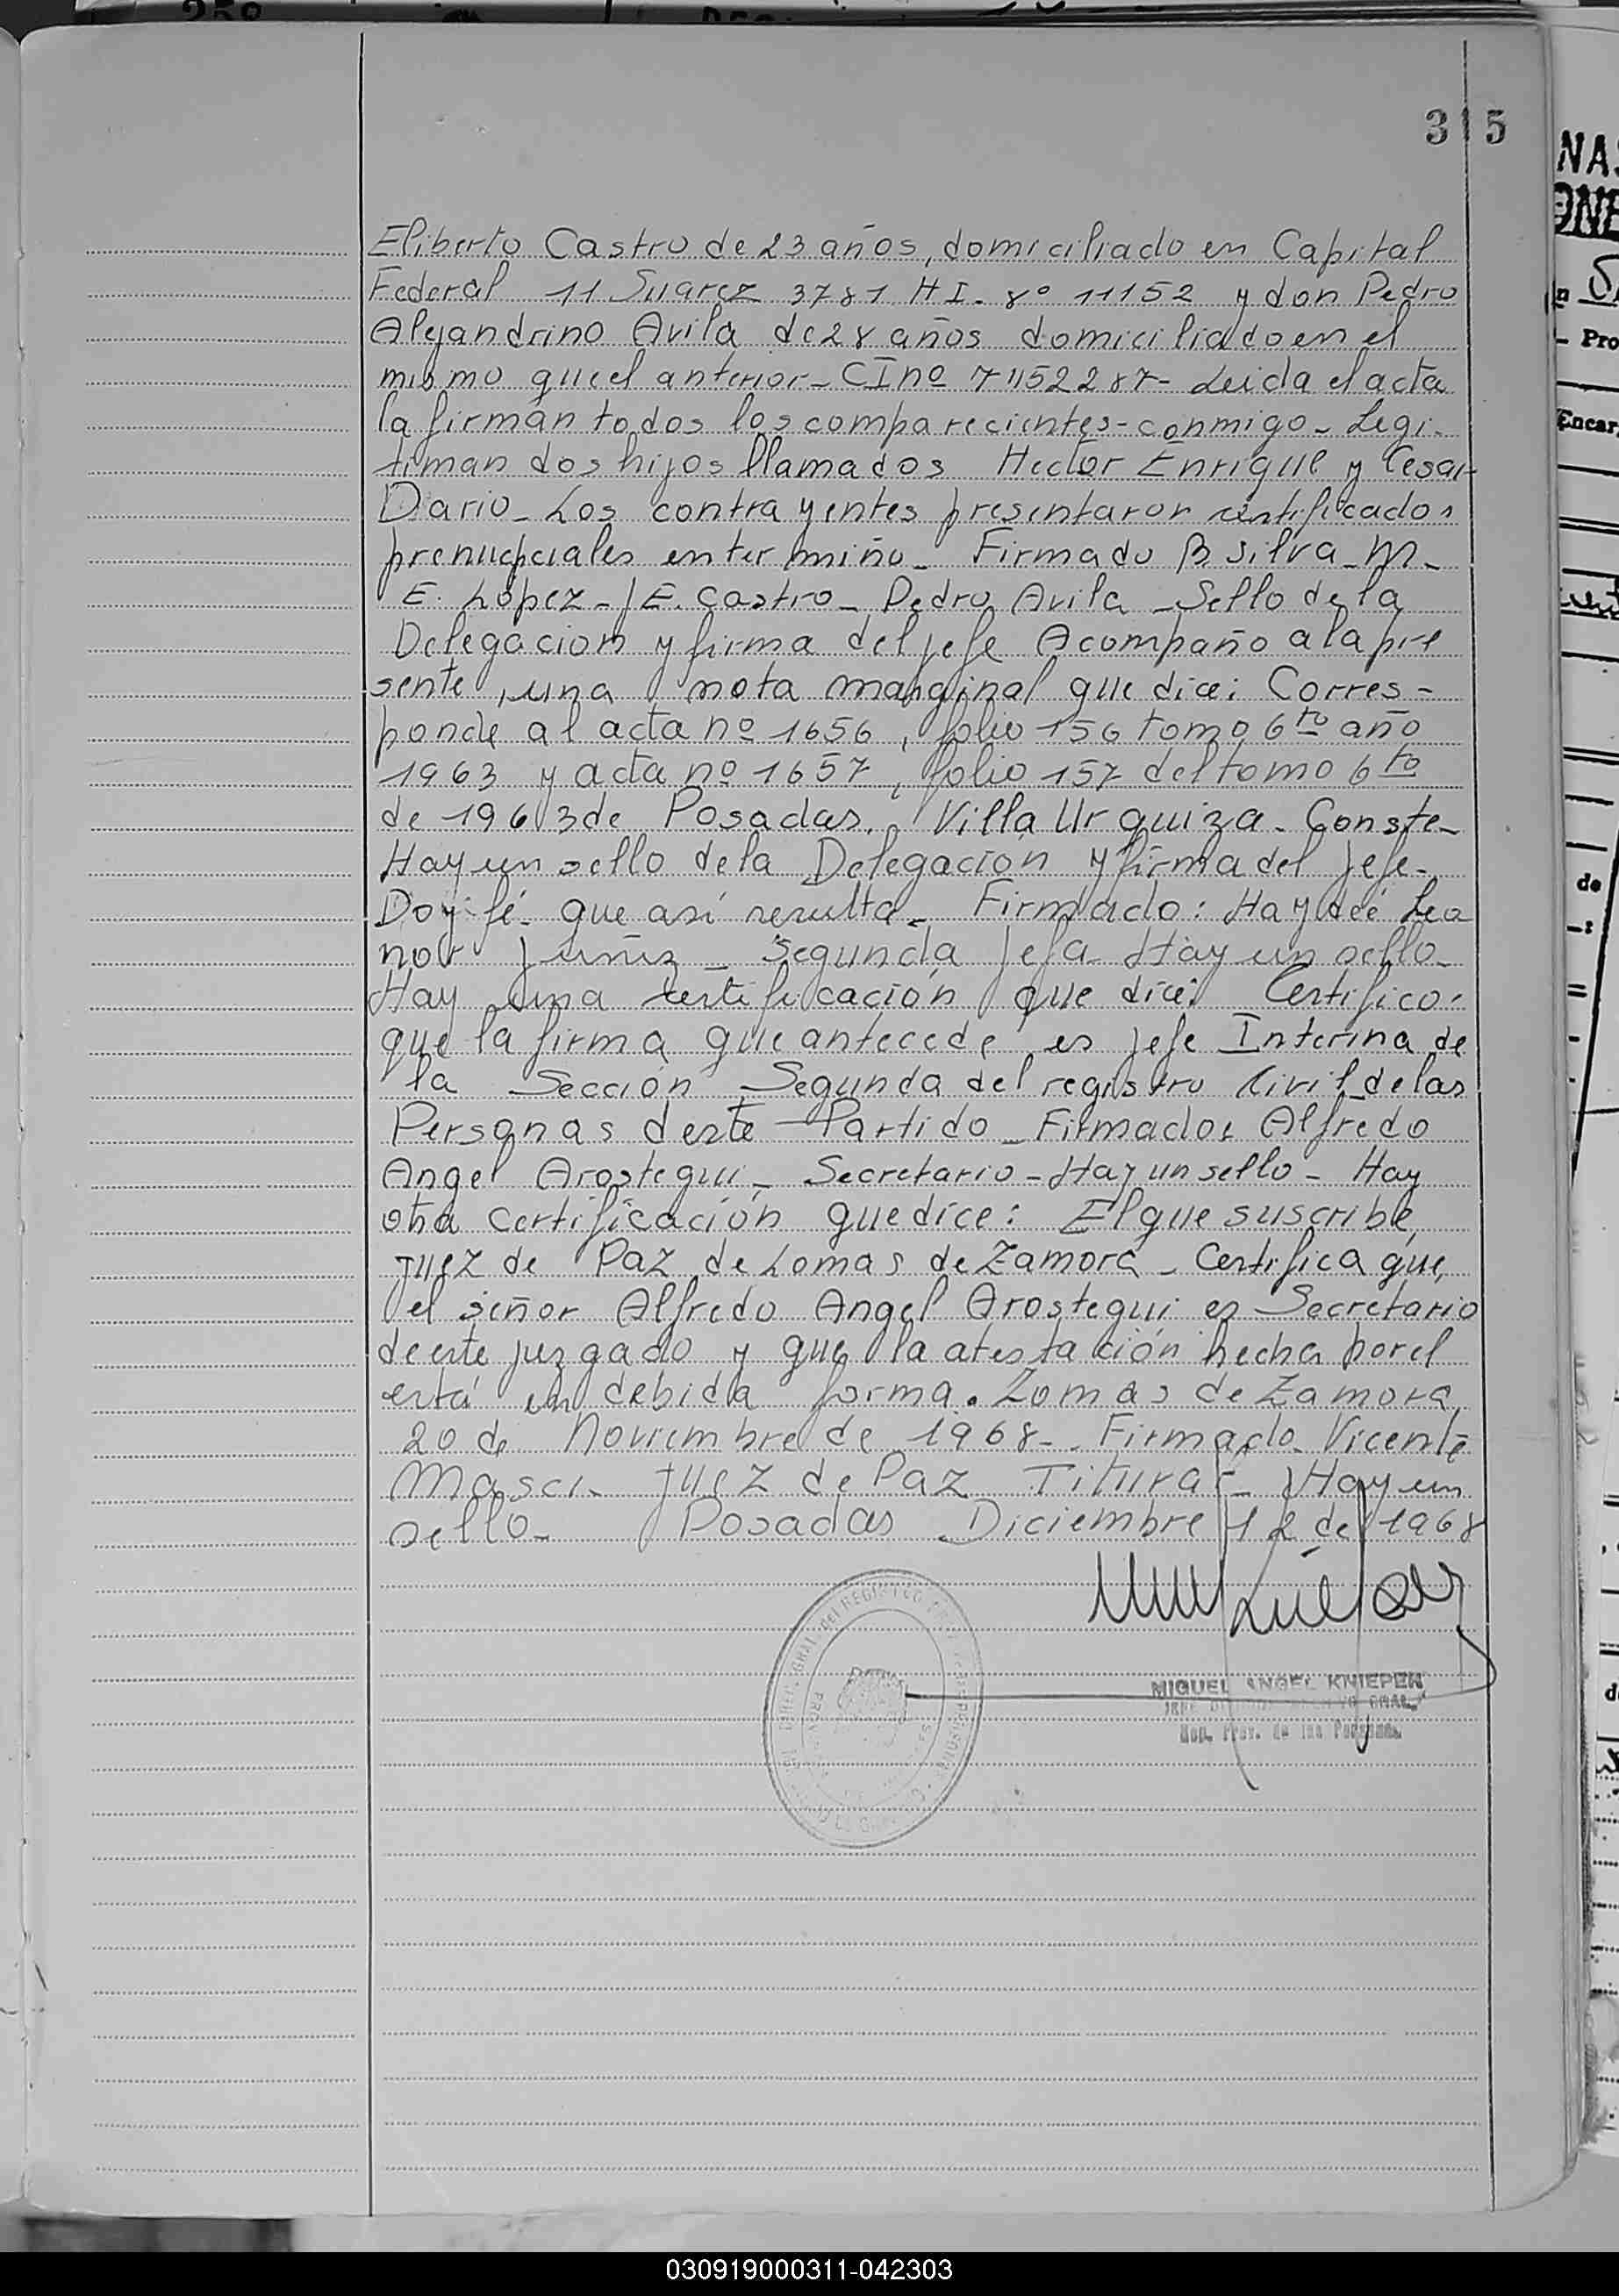 315
Eliberto Castro de 23 años, domiciliado en Capital
Federal 11 Suarez 3781 H I. 8º 11152 y don Pedro
Alejandrino Avila de 28 años domiciliado en el
mismo que el anterior - CI nº 71152287 - Leida el acta
la firman todos los comparecientes - conmigo - Legi-
timan dos hijos llamados Hector Enrique y Cesar
Dario - Los contrayentes presentaron certificados
prenupciales en termino - Firmado B Silva - M.
E. López - E. Castro - Pedro Avila - Sello de la
Delegacion y firma del jefe Acompaño a la pre
sente, una nota marginal que dice: Corres-
ponde al acta nº 1656, folio 156 tomo 6to año
1963 y acta nº 1657, folio 157 del tomo 6to
de 1963 de Posadas. Villa Urquiza - Conste -
Hay un sello de la Delegación y firma del jefe -
Doy fé que así resulta - Firmado: Haydeé Leo
nor - Segunda Jefa - Hay un sello -
Hay una certificación que dice: Certifico:
que la firma que antecede es jefe Interina de
la Sección Segunda del registro Civil de las
Personas deste Partido - Firmado: Alfredo
Angel Arostegui - Secretario - Hay un sello - Hay
otra certificación que dice: El que suscribe,
juez de Paz de Lomas de Zamora - Certifica que,
el señor Alfredo Angel Arostegui es Secretario
de este juzgado y que la atestación hecha por el
está en debida forma. Lomas de Zamora,
20 de Noviembre de 1968 - Firmado Vicente
Masci - Juez de Paz Titular - Hay un
sello - Posadas Diciembre 12 de 1968
MIGUEL ANGEL KNIEPEN
030919000311-042303